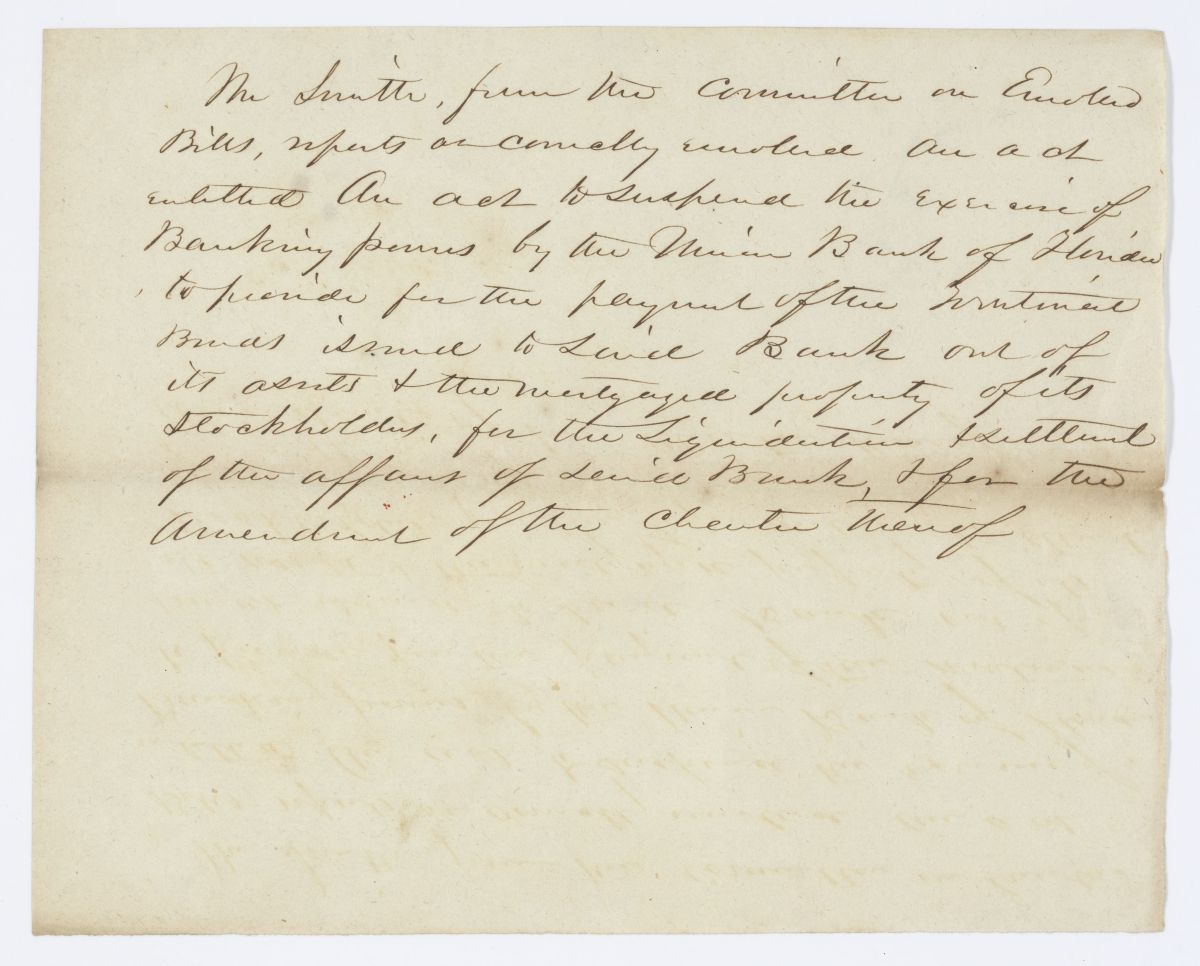 Mr Smith, from the Committee on Enroled
Bills, reports as correctly enroled an act
entitled An act to suspend the exercise of
Banking powers by the Union Bank of Florida
to provide for the payment of the Territorial
Bonds issued to said Bank out of
its assets & the mortgaged property of its
stockholders, for the Liquidation & settlement
of the affairs of said Bank, & for the
Amendment of the Charter thereof